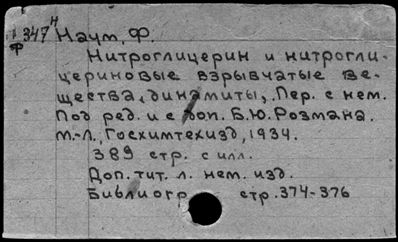 347 Н Наум, Ф.
Ф
Нитроглицерин и нитрогли-
цериновые взрывчатые ве-
щества, динамиты, Пер. с нем.
Под ред. и с доп. Б.Ю. Розмана.
М.-Л., Госхимтехизд, 1934.
389 стр. с илл.
Доп. тит. л. нем. изд.
Библиогр стр. 374-376